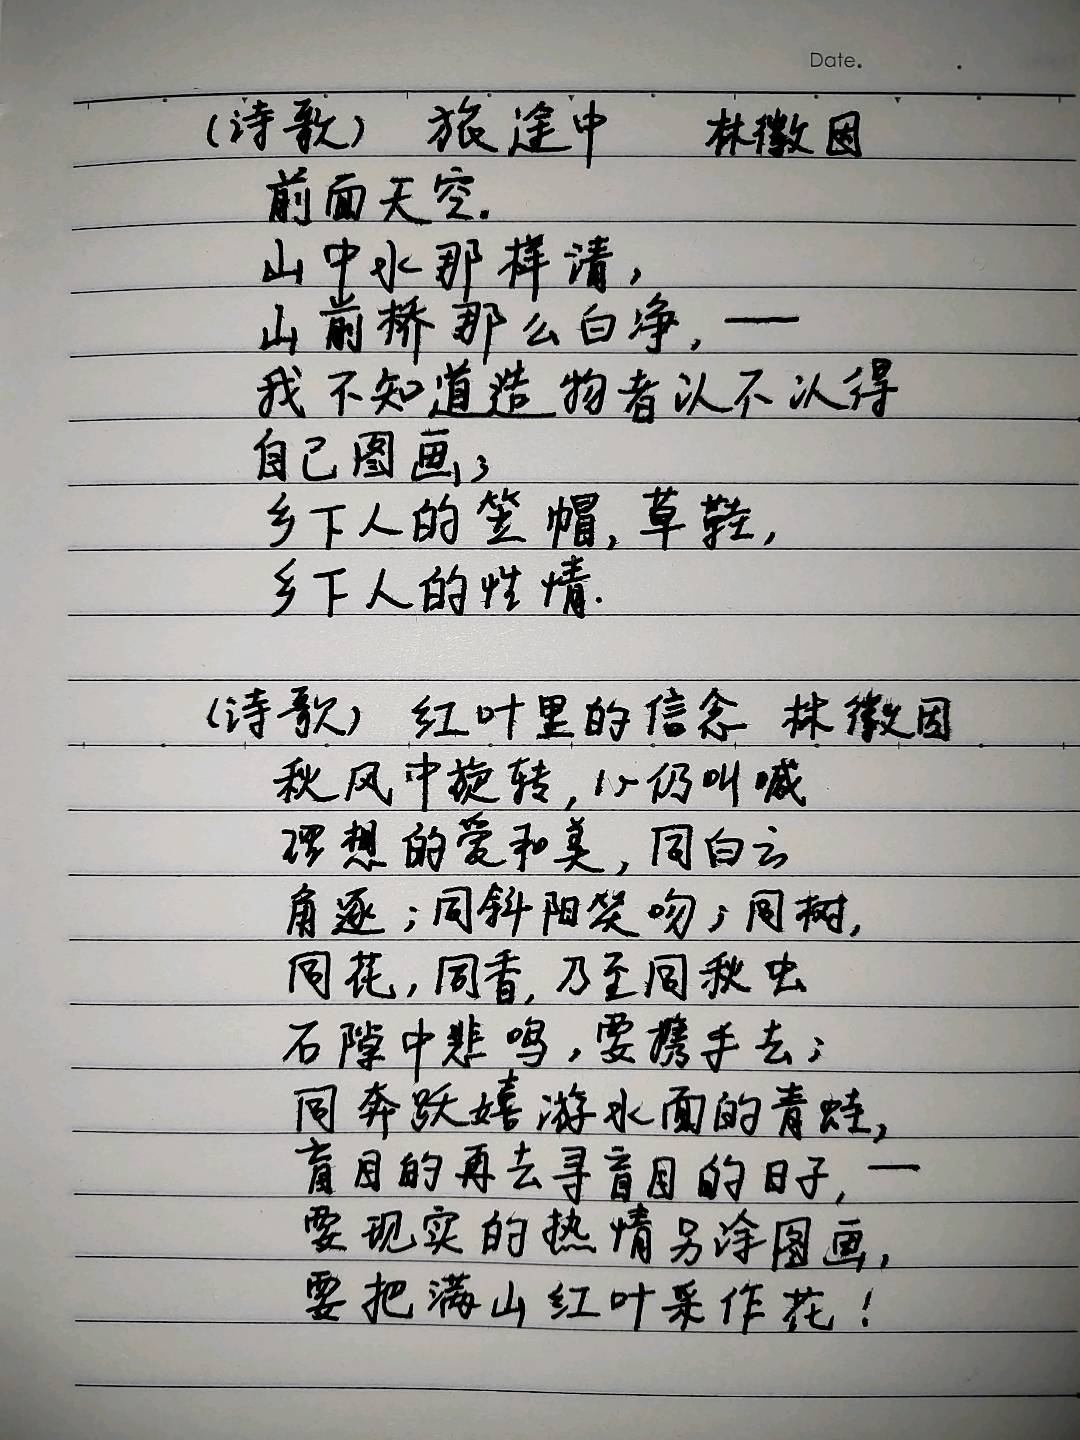 Date.
(诗歌) 旅途中 林徽因
前面天空.
山中水那样清,
山前桥那么白净, —
我不知道造物者认不认得
自己图画;
乡下人的笠帽,草鞋,
乡下人的性情.
(诗歌) 红叶里的信念 林徽因
秋风中旋转,心仍叫喊
理想的爱和美,同白云
角逐;同斜阳笑吻;同树,
同花,同香,乃至同秋虫
石隙中悲鸣,要携手去;
同奔跃嬉游水面的青蛙,
盲目的再去寻盲目的日子,—
要现实的热情另涂图画,
要把满山红叶采作花!